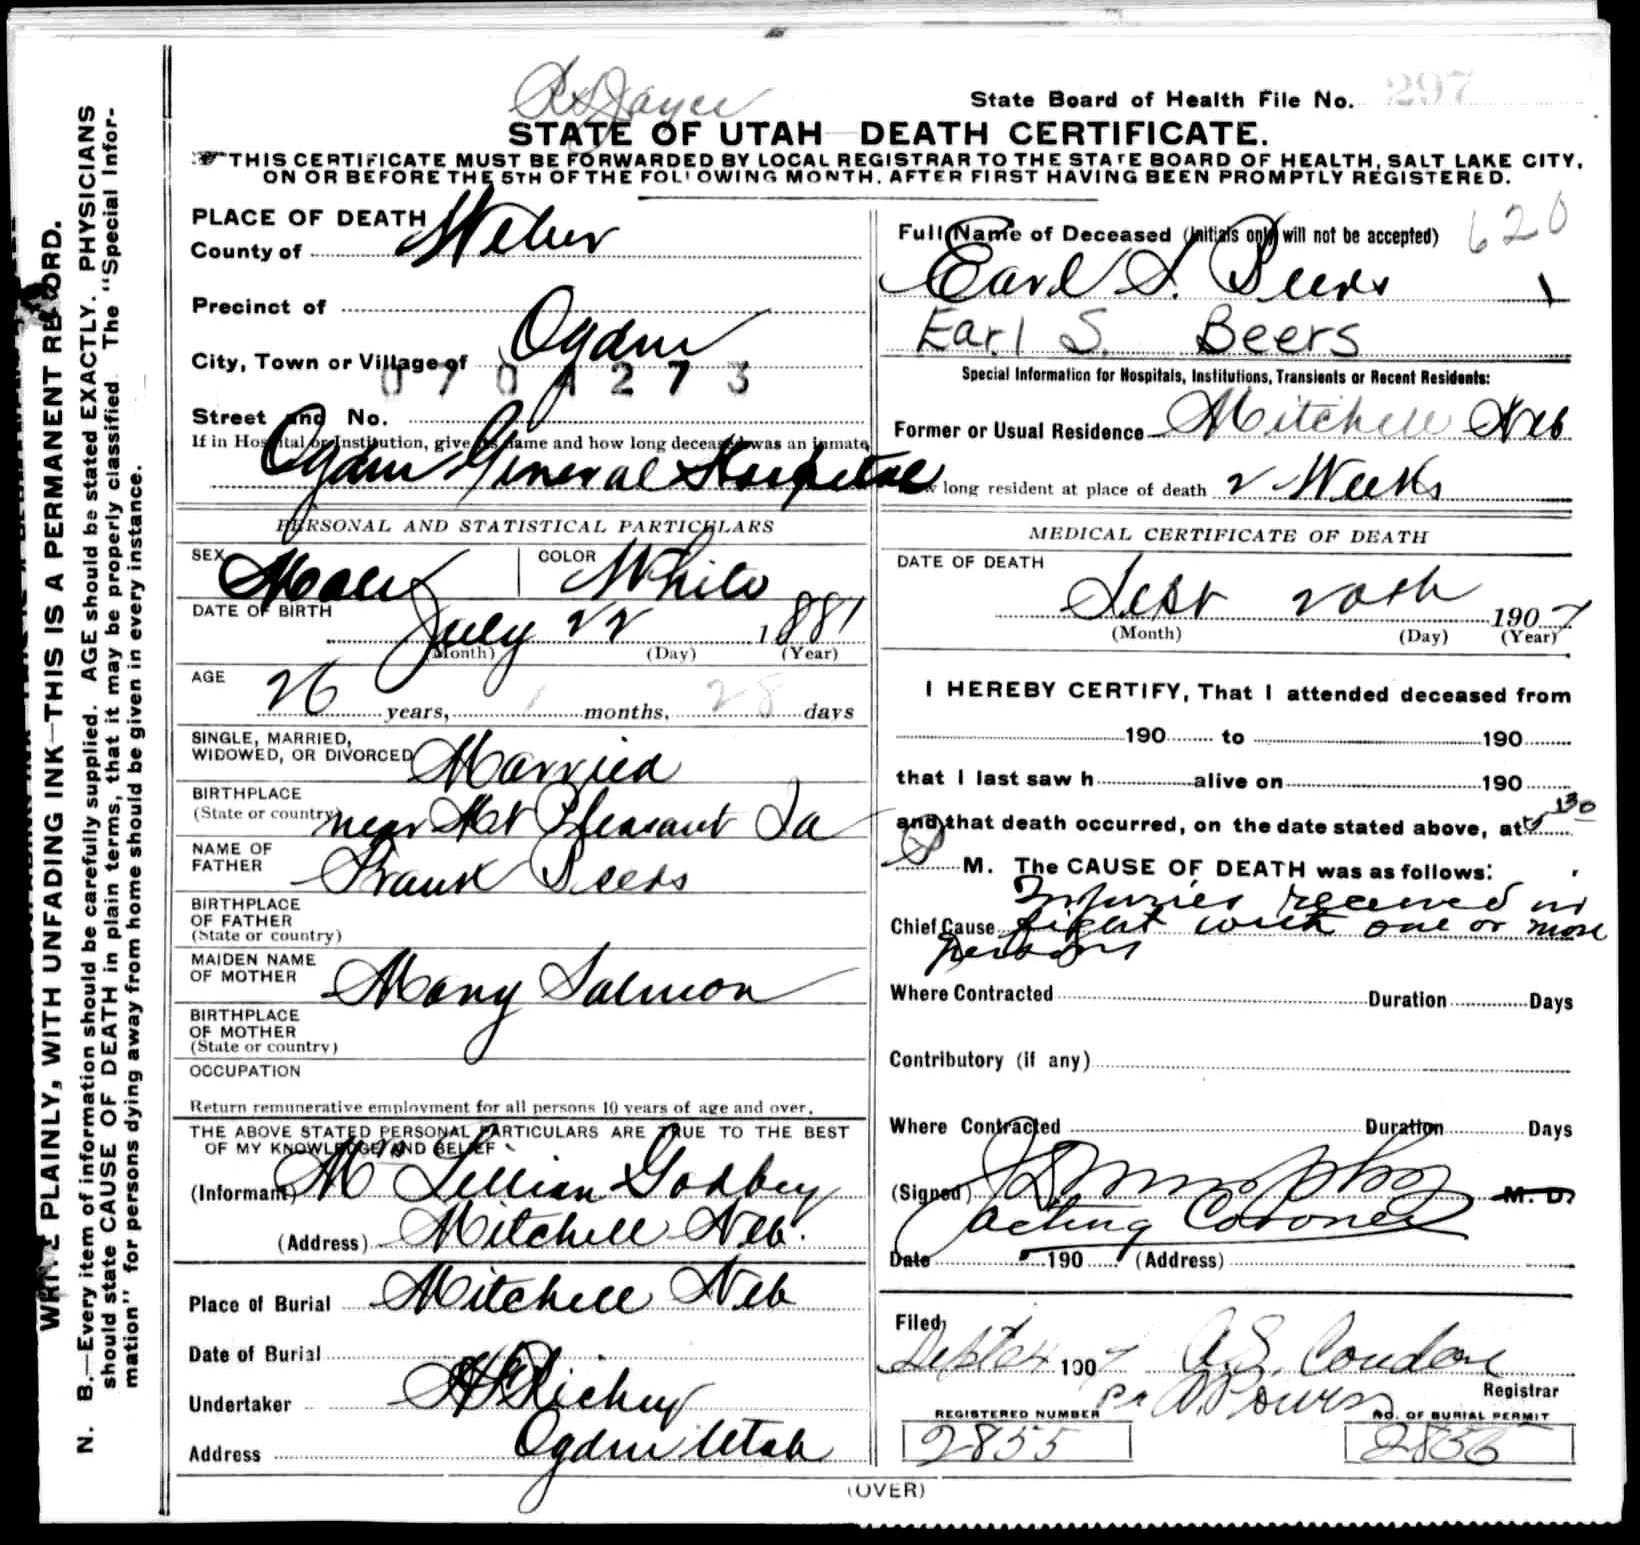 State Board of Health File No. 297
STATE OF UTAH—DEATH CERTIFICATE.
THIS CERTIFICATE MUST BE FORWARDED BY LOCAL REGISTRAR TO THE STATE BOARD OF HEALTH, SALT LAKE CITY,
ON OR BEFORE THE 5TH OF THE FOLLOWING MONTH, AFTER FIRST HAVING BEEN PROMPTLY REGISTERED.
WRITE PLAINLY, WITH UNFADING INK—THIS IS A PERMANENT RECORD.
N. B.—Every item of information should be carefully supplied. AGE should be stated EXACTLY. PHYSICIANS
should state CAUSE OF DEATH in plain terms, that it may be properly classified. The "Special Infor-
mation" for persons dying away from home should be given in every instance.
PLACE OF DEATH
County of Weber
Precinct of
City, Town or Village of Ogden
0701273
Street and No.
If in Hospital or Institution, give its name and how long deceased was an inmate
Ogden General Hospital
PERSONAL AND STATISTICAL PARTICULARS
SEX Male COLOR White
DATE OF BIRTH
July 22 1881
(Month) (Day) (Year)
AGE
26 years, 1 months, 28 days
SINGLE, MARRIED,
WIDOWED, OR DIVORCED Married
BIRTHPLACE
(State or country) near Mt Pleasant Ia
NAME OF
FATHER Frank Beers
BIRTHPLACE
OF FATHER
(State or country)
MAIDEN NAME
OF MOTHER Mary Salmon
BIRTHPLACE
OF MOTHER
(State or country)
OCCUPATION
Return remunerative employment for all persons 10 years of age and over.
THE ABOVE STATED PERSONAL PARTICULARS ARE TRUE TO THE BEST
OF MY KNOWLEDGE AND BELIEF
(Informant) Mrs Lillian Godbey
(Address) Mitchell Neb.
Place of Burial Mitchell Neb
Date of Burial
Undertaker Richey
Address Ogden Utah
Full Name of Deceased (Initials only will not be accepted) 620
Earl S. Beers
Earl S. Beers
Special Information for Hospitals, Institutions, Transients or Recent Residents:
Former or Usual Residence Mitchell Neb
long resident at place of death 2 Weeks
MEDICAL CERTIFICATE OF DEATH
DATE OF DEATH
Sept 20th 1907
(Month) (Day) (Year)
I HEREBY CERTIFY, That I attended deceased from
190 to 190
that I last saw h alive on 190
and that death occurred, on the date stated above, at 5 30
P M. The CAUSE OF DEATH was as follows:
Injuries received in
Chief Cause fight with one or more
persons
Where Contracted Duration Days
Contributory (if any)
Where Contracted Duration Days
(Signed) M. D.
Acting Coroner
Date 190 (Address)
Filed,
Sept 24 1907 A.S. Condon
Registrar
REGISTERED NUMBER
2855
NO. OF BURIAL PERMIT
2855
(OVER)